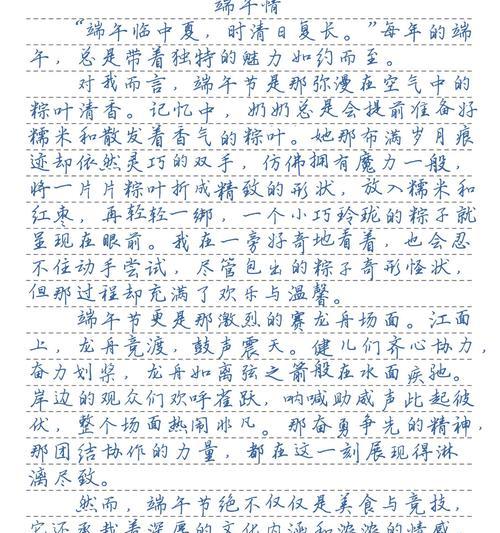 端午情
“端午临中夏，时清日复长。”每年的端
午，总是带着独特的魅力如约而至。
对我而言，端午节是那弥漫在空气中的
粽叶清香。记忆中，奶奶总是会提前准备好
糯米和散发着香气的粽叶。她那布满岁月痕
迹却依然灵巧的双手，仿佛拥有魔力一般，
将一片片粽叶折成精致的形状，放入糯米和
红枣，再轻轻一绑，一个小巧玲珑的粽子就
呈现在眼前。我在一旁好奇地看着，也会忍
不住动手尝试，尽管包出的粽子奇形怪状，
但那过程却充满了欢乐与温馨。
端午节更是那激烈的赛龙舟场面。江面
上，龙舟竞渡，鼓声震天。健儿们齐心协力，
奋力划桨，龙舟如离弦之箭般在水面疾驰。
岸边的观众们欢呼雀跃，呐喊助威声此起彼
伏，整个场面热闹非凡。那奋勇争先的精神，
那团结协作的力量，都在这一刻展现得淋
漓尽致。
然而，端午节绝不仅仅是美食与竞技，
它还承载着深厚的文化内涵和浓浓的情感。